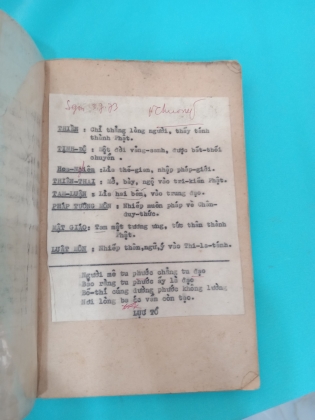 THIỀN : Chỉ thẳng lòng người, thấy tánh
thành Phật.
TỊNH-ĐỘ : Một đời vãng-sanh, được bất-thối
chuyển.
Hoa-Nghiêm : Lìa thế-gian, nhập pháp-giới.
THIÊN-THAI : Mở, bày, ngộ vào tri-kiến Phật.
TAM-LUẬN : Lìa hai bên, vào trung đạo.
PHÁP TƯỚNG TÔN : Nhiếp muôn pháp về Chân-
duy-thức.
MẬT GIÁO: Tam mật tương ưng, tức thân thành
Phật.
LUẬT TÔN : Nhiếp thân, ngữ, ý vào Thi-la-tánh.
Người mê tu phước chẳng tu đạo
Bảo rằng tu phước ấy là đạo
Bố-thí cúng dường phước không lường
Nơi lòng ba ác vẫn còn tạo.
LỤC TỔ